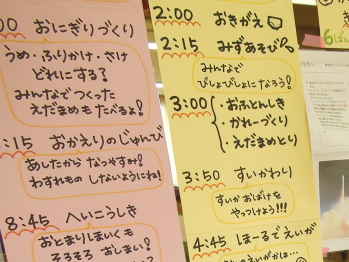 00 おにぎりづくり
うめ・ふりかけ・さけ
どれにする?
みんなでつくった
えだまめもたべるよ!
:15 おかえりのじゅんび
あしたから なつやすみ!
わすれもの しないようにね!
8:45 へいこうしき
おとまりほいくも
そろそろ おしまい!
2:00 おきがえ
2:15 みずあそび
みんなで
びしょびしょになろう!
3:00 ・おふとんしき
・かれーづくり
・えだまめとり
3:50 すいかわり
すいかおばけを
やっつけよう!!!
4:45 ほーるでえいが
えいがは…
6ぱん